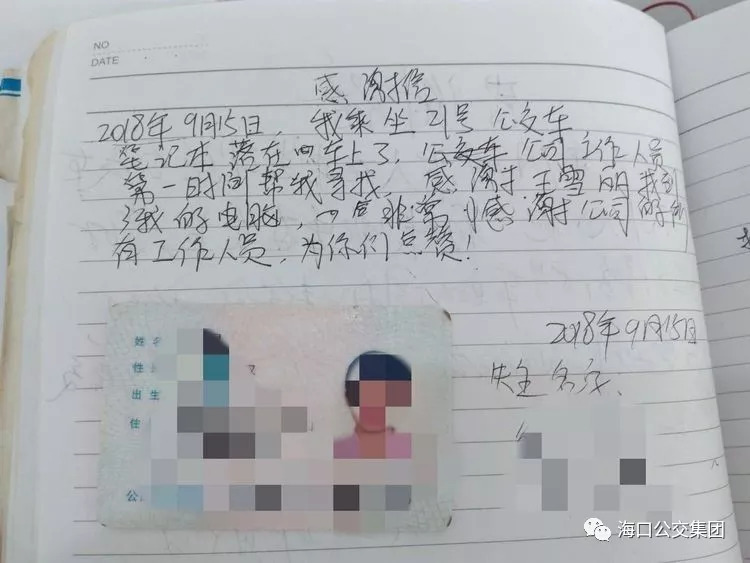 NO
DATE
感谢信
2018年9月15日, 我乘坐21号公交车
笔记本落在 车上了, 公交车公司工作人员
第一时间帮我寻找, 感谢 王雪明找到
了我的电脑, 非常 感谢公司的所
有工作人员, 为你们点赞!
2018年9月15日
失主名字:
姓名
性
出生
住
公
海口公交集团